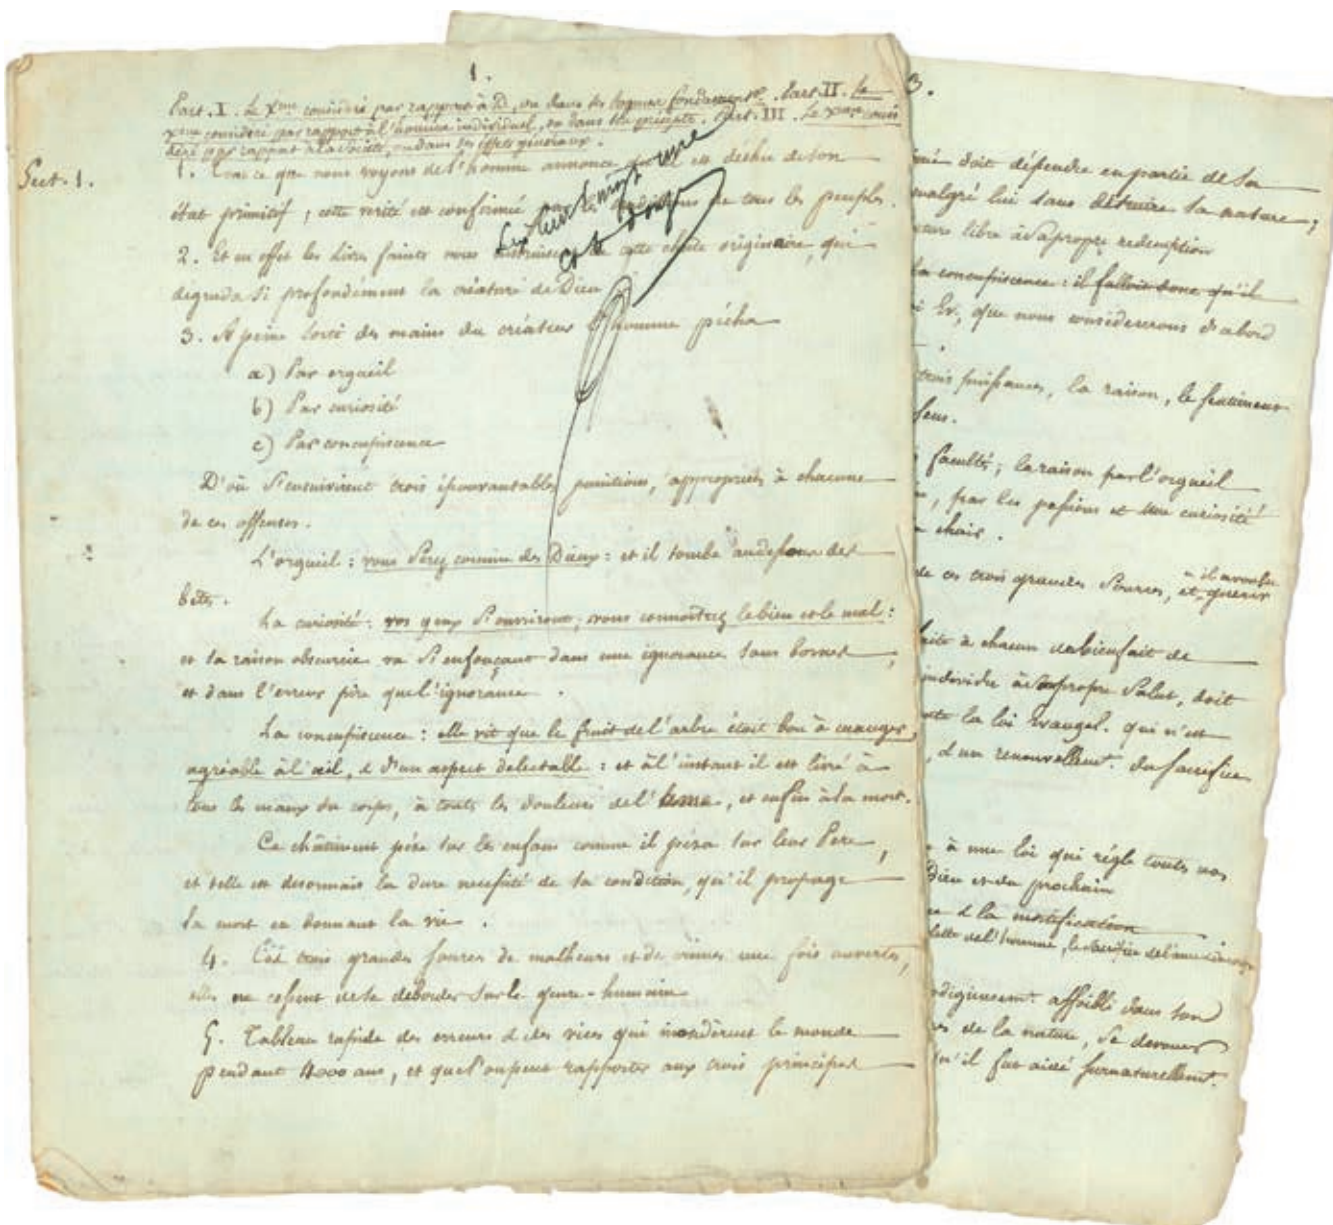 1.
Part. I. Le Xme considéré par rapport à D, ou dans ses dogmes fondament. Part. II. Le
Xme considéré par rapport à l'homme individuel, ou dans ses préceptes. Part. III. Le Xme consi
déré par rapport à la Société, ou dans ses effets généraux.
Sect. 1.
1. Tout ce que nous voyons de l'homme annonce qu'il est déchu de son
état primitif; cette verité est confirmée par les traditions de tous les peuples.
2. Et en effet les Livres saints nous instruisent de cette chute originaire, qui
dégrada si profondément la créature de Dieu
3. A peine sorti des mains du créateur l'homme pécha
a) Par orgueil
b) Par curiosité
c) Par concupiscence
D'où s'ensuivirent trois épouvantables punitions, appropriées à chacune
de ces offenses.
L'orgueil : vous serez comme des Dieux : et il tombe audessous des
bêtes.
La curiosité : vos yeux s'ouvriront, vous connoîtrez le bien et le mal :
et sa raison obscurcie va s'enfonçant dans une ignorance sans bornes,
et dans l'erreur pire que l'ignorance.
La concupiscence : elle vit que le fruit de l'arbre étoit bon à manger,
agréable à l'œil, & d'un aspect delectable : et à l'instant il est livré à
tous les maux du corps, à touts les douleurs de l'âme, et enfin à la mort.
Ce châtiment pèse sur les enfans comme il pèsa sur leur Pere,
et telle est desormais la dure necessité de sa condition, qu'il propage
la mort en donnant la vie.
4. Ces trois grandes sources de malheurs et de crimes une fois ouvertes,
elles ne cessent de se deborder sur le genre-humain
5. Tableau rapide des erreurs & des vices qui inondèrent le monde
pendant 4000 ans, et que l'on peut rapporter aux trois principes
3.
doit dépendre en partie de sa
malgré lui sans détruire sa nature;
libre à sa propre redemption
la concupiscence : il falloit donc qu'il
que nous considérerons d'abord
trois puissances, la raison, le sentiment
sens.
facultés; la raison par l'orgueil
par les passions et une curiosité
chair.
de ces trois grandes sources, et guérir
à chacun du bienfait de
individu à sa propre salut, doit
la loi évangel. qui n'est
d'un renouvellemt. du sacrifice
à une loi qui régle touts nos
Dieu et du prochain
& la mortification
de l'homme, le sacrifice de
affoibli dans son
de la nature, se devoues
qu'il fut aidé surnaturellemt.